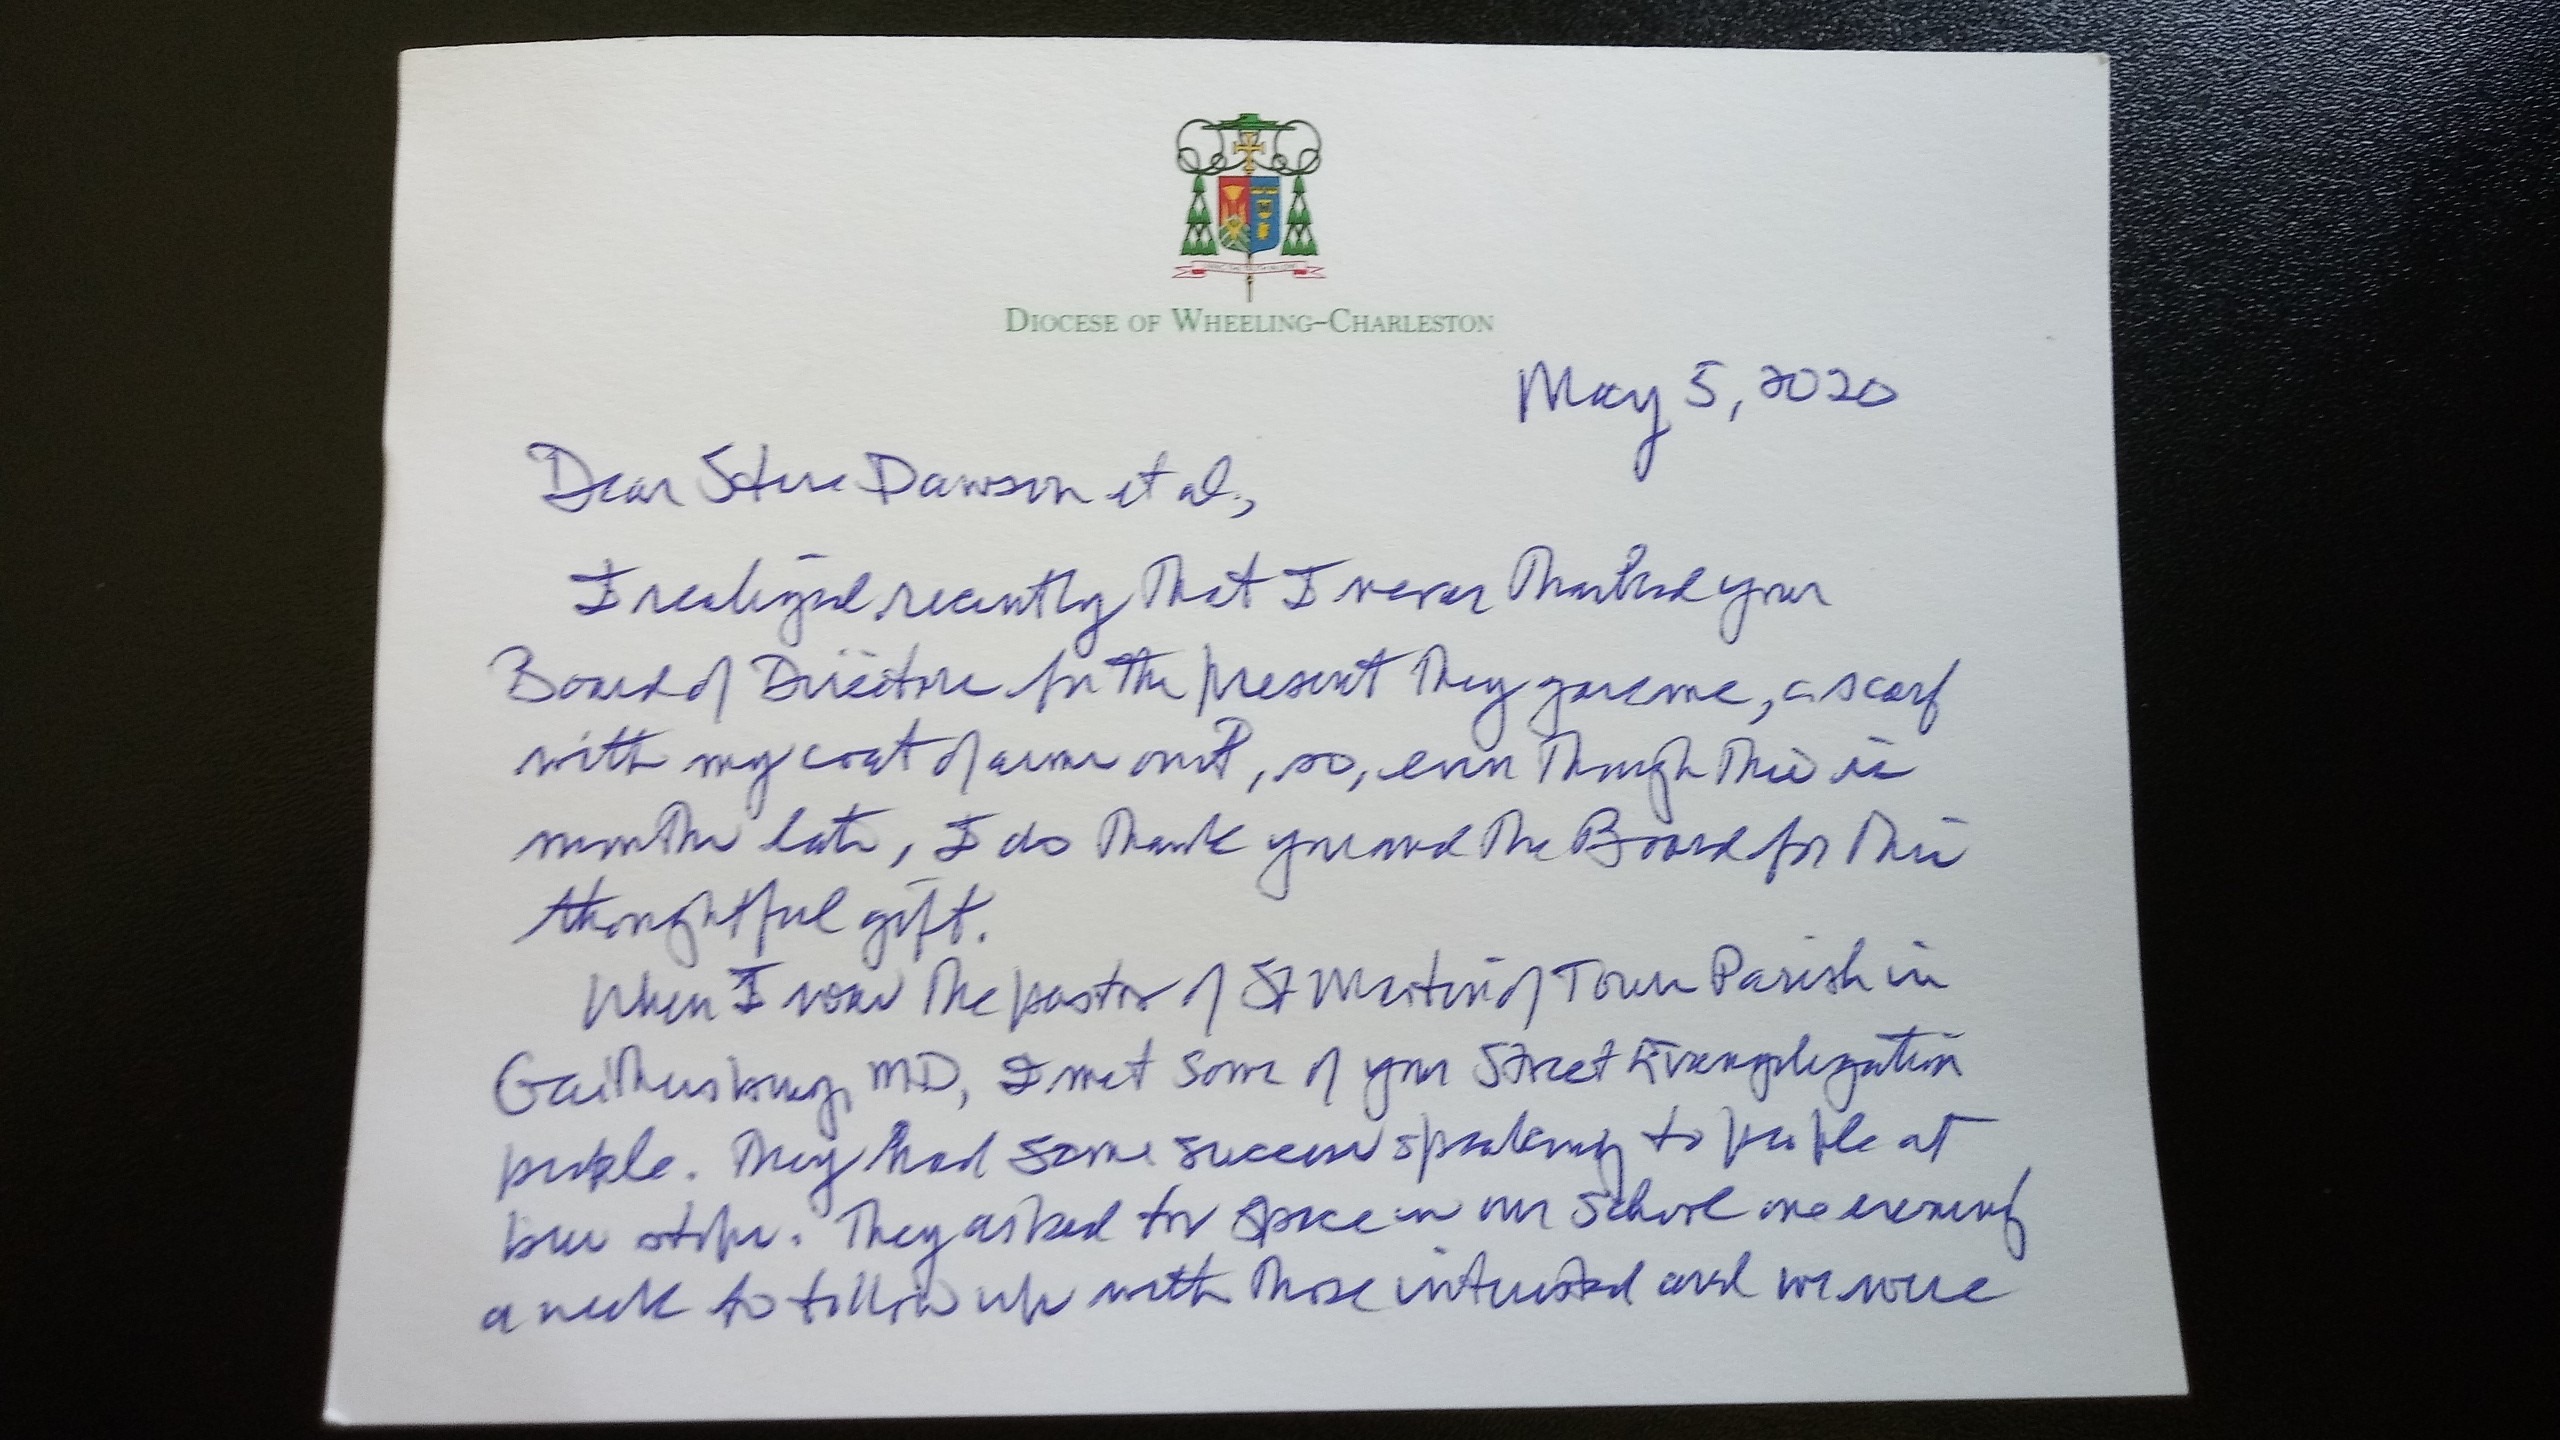 Diocese of Wheeling–Charleston
May 5, 2020
Dear Steve Dawson et al.,
I realized recently that I never thanked your
Board of Directors for the present they gave me, a scarf
with my coat of arms on it, so, even though this is
months late, I do thank you and the Board for this
thoughtful gift.
When I was the pastor of St Martin of Tours Parish in
Gaithersburg, MD, I met some of your Street Evangelization
people. They had some success speaking to people at
bus stops. They asked for space in our school one evening
a week to follow up with those interested and we were